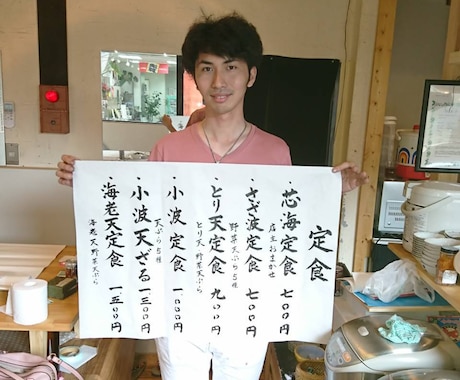 定食
芯海定食 七〇〇円
店主おまかせ
・さざ波定食 七〇〇円
野菜天ぷら5種
・とり天定食 九〇〇円
とり天、野菜天ぷら
・小波定食 一〇〇〇円
・小波天ざる 一三〇〇円
天ぷら5種
・海老天定食 一五〇〇円
海老天野菜天ぷら